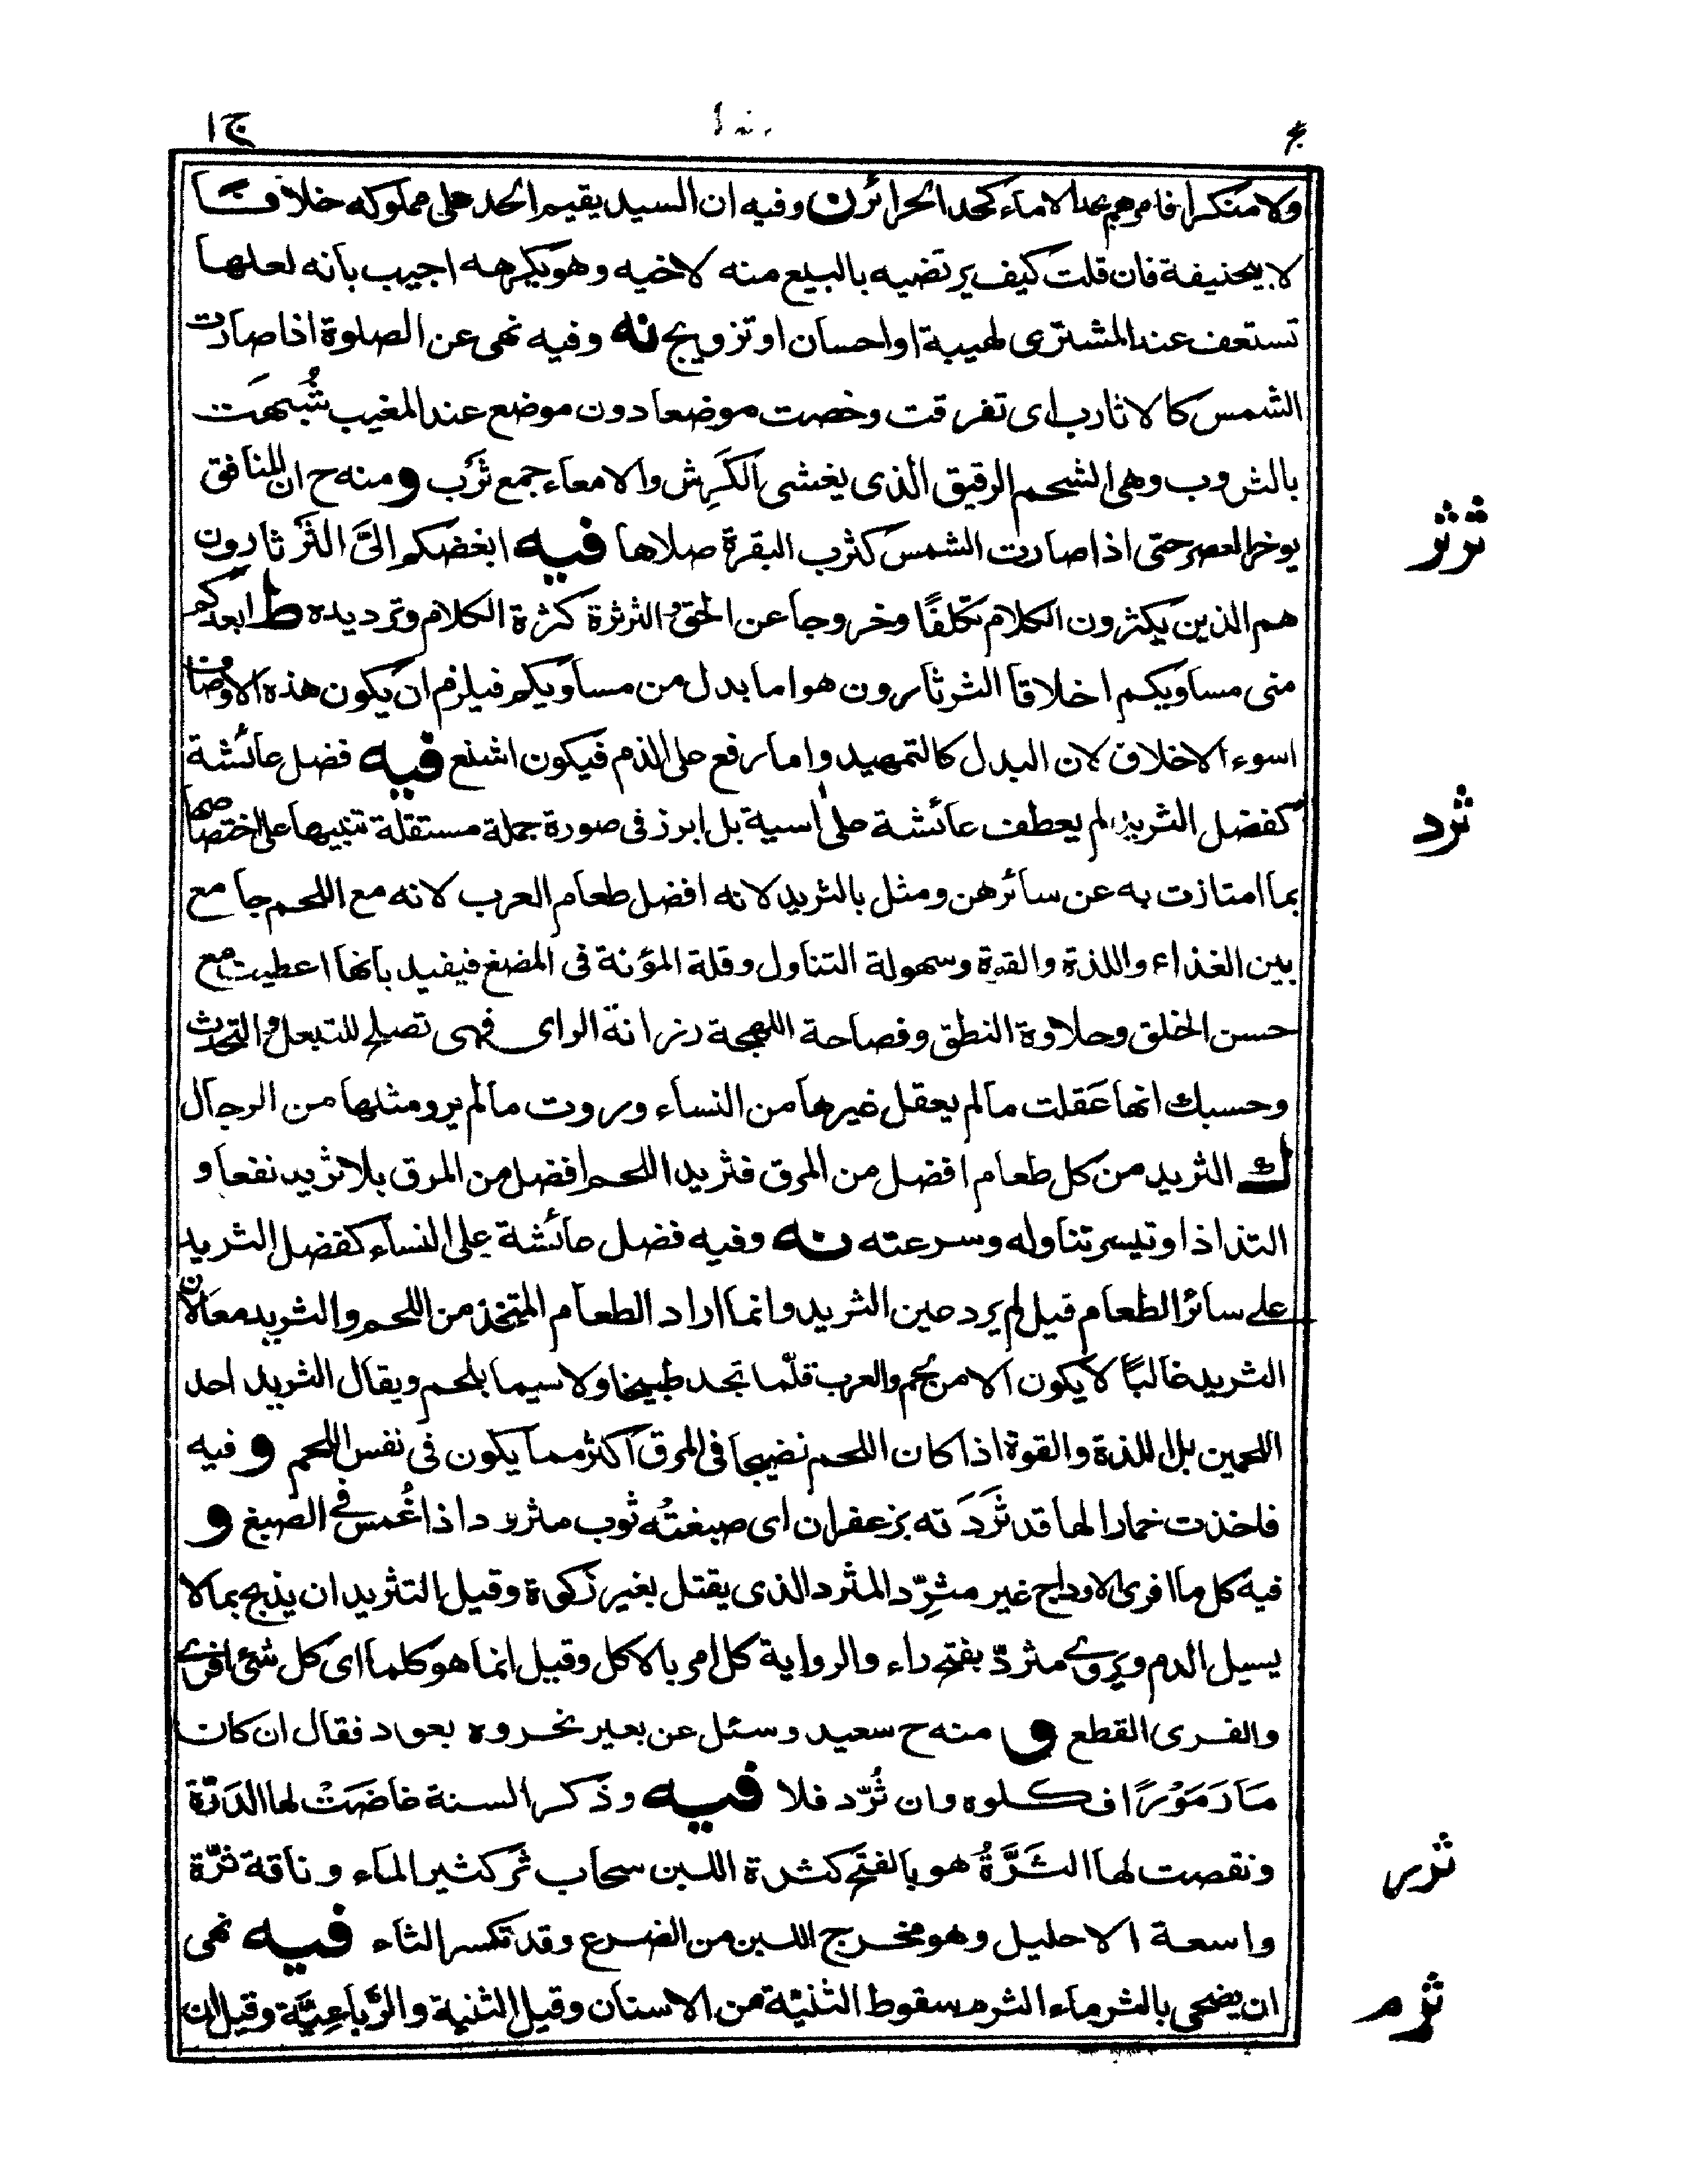 ج ١
ولا منكرا فامرهم بحد الاماء كحد الحرائر ن وفيه ان السيد يقيم الحد على مملوكه خلافا
لابيحنيفة فان قلت كيف يرتضيه بالبيع منه لاخيه وهو يكرهه اجيب بانه لعلها
تستعف عند المشترى لهيبة او احسان او تزويج نه وفيه نهى عن الصلوة اذا صارت
الشمس كالاثارب اى تفرقت وخصت موضعا دون موضع عند المغيب شُبهت
بالثروب وهى الشحم الرقيق الذى يغشى الكَرِش والامعاء جمع ثَرْب و منه ح ان المنافق
يوخر العصر حتى اذا صارت الشمس كثرب البقرة صلاها فيه ابغضكم الىَّ الثَرْثارون
هم الذين يكثرون الكلام تكلفًا وخروجا عن الحق و الثرثرة كثرة الكلام وترديده ط ابعدكم
منى مساويكم اخلاقا الثرثارون هو اما بدل من مساويكم فيلزم ان يكون هذه الاوصاف
اسوء الاخلاق لان البدل كالتمهيد واما رفع على الذم فيكون اشنع فيه فضل عائشة
كفضل الثريد لم يعطف عائشة على اسية بل ابرز فى صورة جملة مستقلة تنبيها على اختصاصها
بما امتازت به عن سائرهن ومثل بالثريد لانه افضل طعام العرب لانه مع اللحم جامع
بين الغذاء واللذة والقوة وسهولة التناول وقلة المؤنة فى المضغ فيفيد بانها اعطيت مع
حسن الخلق وحلاوة النطق وفصاحة اللهجة رزانة الراى فهى تصلح للتبعل والتحدث
وحسبك انها عَقلت مالم يعقل غيرها من النساء وروت مالم يرو مثلها من الرجال
ك الثريد من كل طعام افضل من المرق فثريد اللحم افضل من المرق بلا ثريد نفعا و
التذاذا وتيسر تناوله وسرعته نه وفيه فضل عائشة على النساء كفضل الثريد
على سائر الطعام قيل لم يرد عين الثريد وانما اراد الطعام المتخذ من اللحم والثريد معا لان
الثريد غالبًا لا يكون الا من لحم والعرب قلّما تجد طبيخا ولا سيما بلحم ويقال الثريد احد
اللحمين بل اللذة والقوة اذا كان اللحم نضيجا فى المرق اكثر مما يكون فى نفس اللحم و فيه
فاخذت خمارا لها قد ثَرَدَته بزعفران اى صبغتُه ثوب مثرود اذا غُمس فى الصبغ و
فيه كل ما افرى الاوداج غير مثرِّد المثرد الذى يقتل بغير زكوة وقيل التثريد ان يذبح بما لا
يسيل الدم ويروى مثردّ بفتح راء والرواية كل امر بالاكل وقيل انما هو كلما اى كل شئ افرى
والفرى القطع و منه ح سعيد وسئل عن بعير نحروه بعود فقال ان كان
مَارَ مَوْرًا فكلوه وان ثُرّد فلا فيه وذكر السنة غاضَتْ لها الدَّرَّة
ونقصت لها الثَرَّةُ هو بالفتح كثرة اللبن سحاب ثر كثير الماء وناقة ثرّة
واسعة الاحليل وهو مخرج اللبن من الضرع وقد تكسر الثاء فيه نهى
ان يضحى بالثرماء الثرم سقوط الثنيّة من الاسنان وقيل الثنية والرَّباعِيَّة وقيل ان
ثرثر
ثرد
ثرر
ثرم